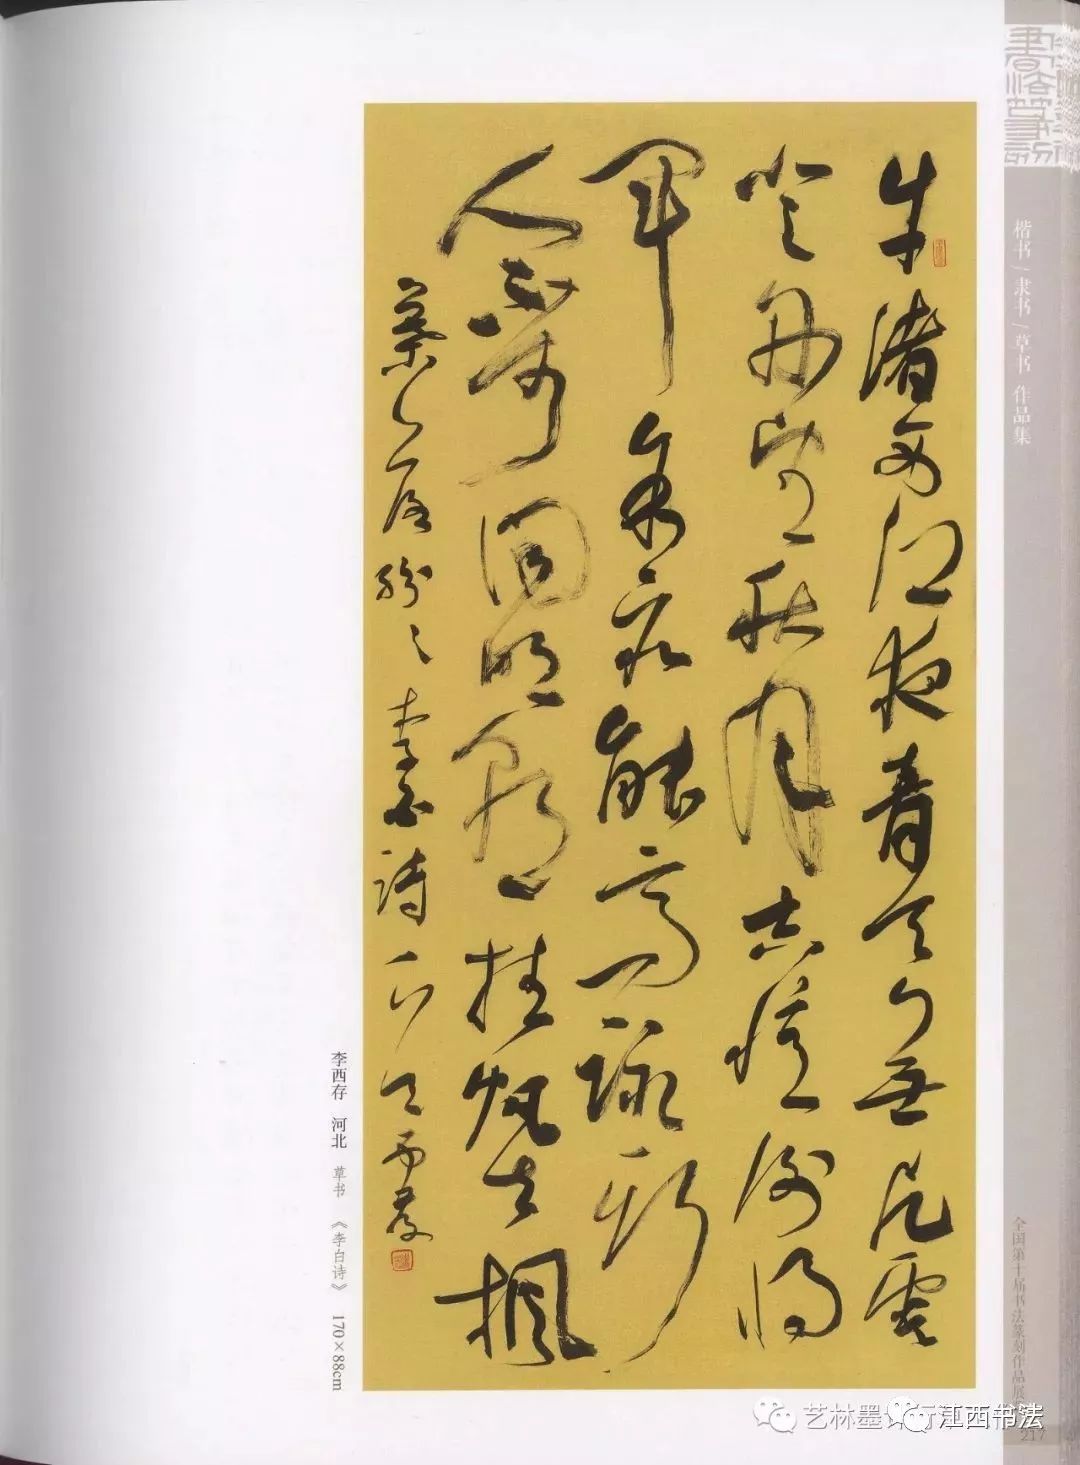 牛渚西江夜青天無片雲
登舟望秋月空憶謝將
軍余亦能高詠斯
人不可聞明朝挂帆去楓
葉落紛紛 李白詩 西存
李西存 河北 草书 《李白诗》 170×88cm
楷书/隶书/草书 作品集
全国第十届书法篆刻作品展
217
艺林墨
江西书法